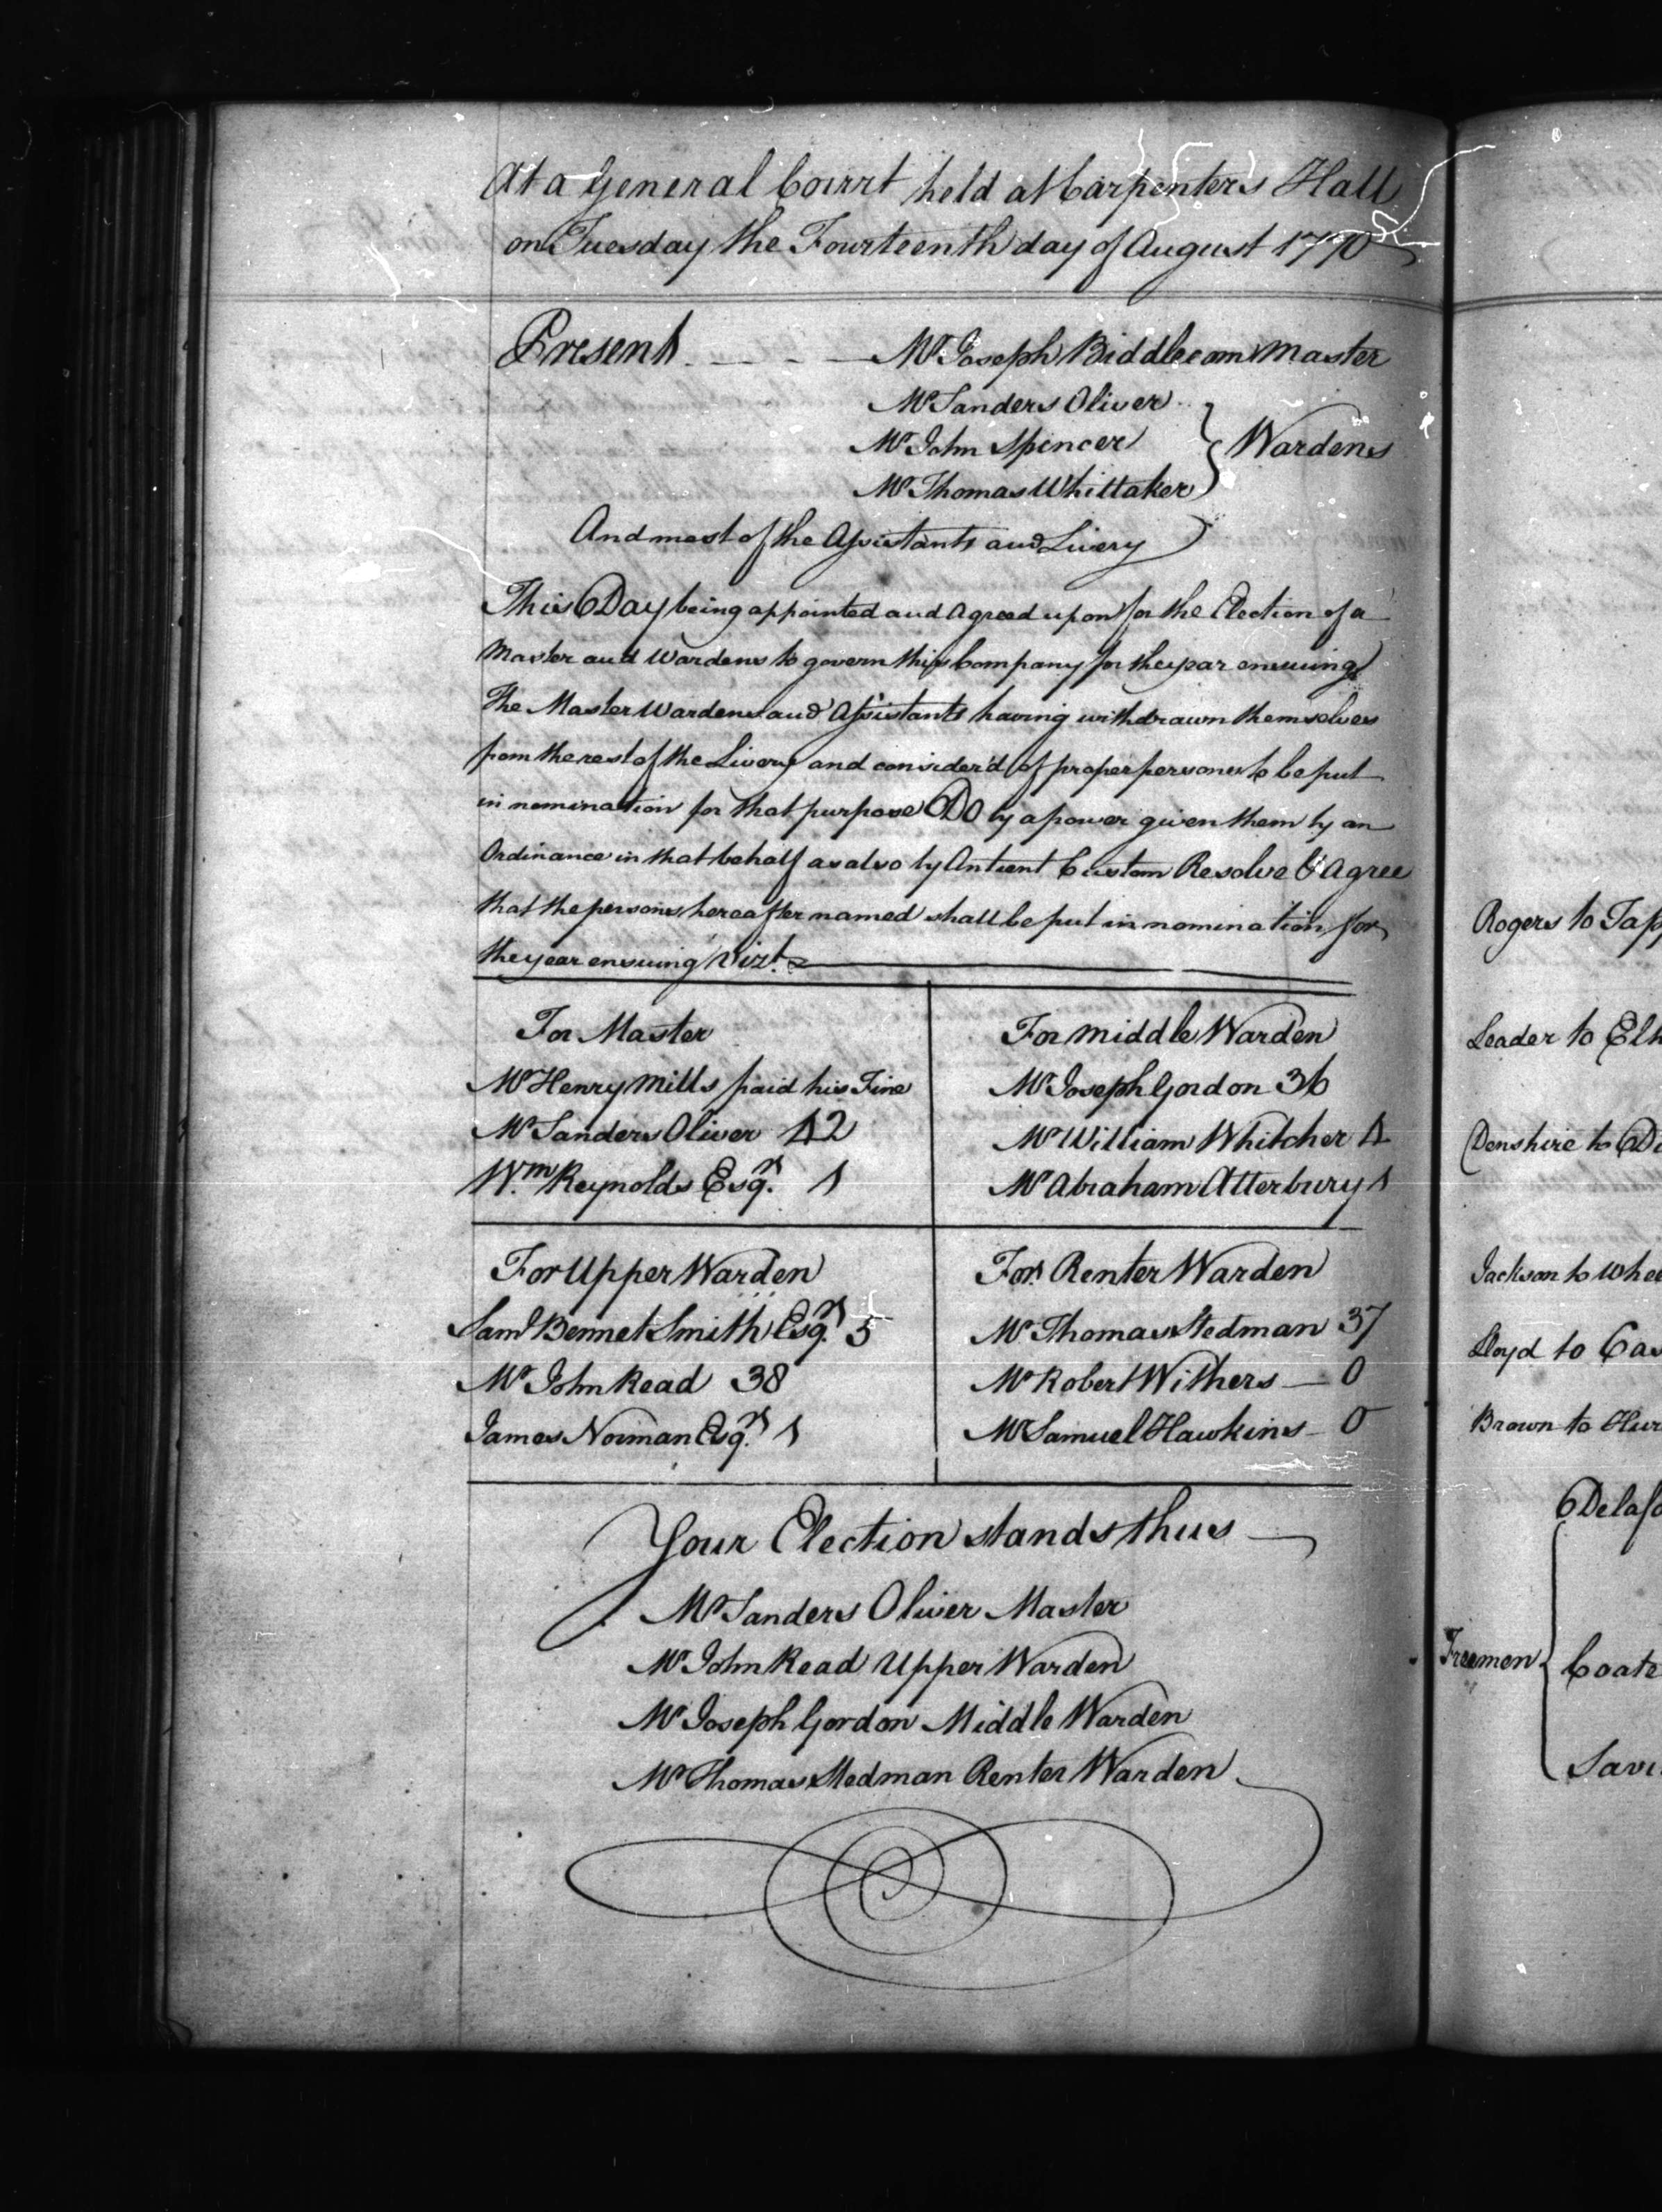 At a General Court held at Carpenters Hall
on Tuesday the Fourteenth day of August 1770
Present - - - - Mr Joseph Biddlecom Master
Mr Sanders Oliver
Mr John Spencer } Wardens
Mr Thomas Whittaker
And most of the Assistants and Livery
This Day being appointed and Agreed upon for the Election of a
Master and Wardens to govern this Company for the year ensuing
The Master Wardens and Assistants having withdrawn themselves
from the rest of the Livery and consider'd of proper persons to be put
in nomination for that purpose Do by a power given them by an
Ordinance in that behalf as also by Antient Custom Resolve & Agree
that the persons hereafter named shall be put in nomination for
the year ensuing Vizt.
For Master
Mr Henry Mills paid his Fine
Mr Sanders Oliver 42
Wm. Reynolds Esqr. 1
For Middle Warden
Mr Joseph Gordon 36
Mr William Whitcher 4
Mr Abraham Atterbury 1
For Upper Warden
Saml Bennet Smith Esqr. 5
Mr John Read 38
James Norman Esqr. 1
For Renter Warden
Mr Thomas Stedman 37
Mr Robert Withers — 0
Mr Samuel Hawkins - 0
Your Election stands thus —
Mr Sanders Oliver Master
Mr John Read Upper Warden
Mr Joseph Gordon Middle Warden
Mr Thomas Stedman Renter Warden
Rogers to
Leader to
Denshire to
Jackson to
Lloyd to
Brown to
Freemen {